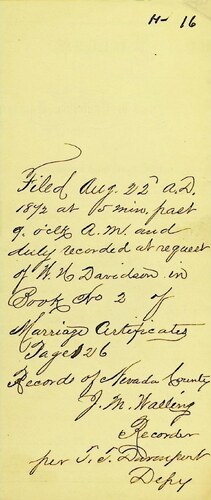 H- 16
Filed Aug. 22d A.D.
1872 at 15 min. past
9. oclk A.M. and
duly recorded at request
of W. H. Davidson in
Book No 2 of
Marriage Certificates
Page 126
Records of Nevada County
J. M. Walling
Recorder
per T. T. Davenport
Depy